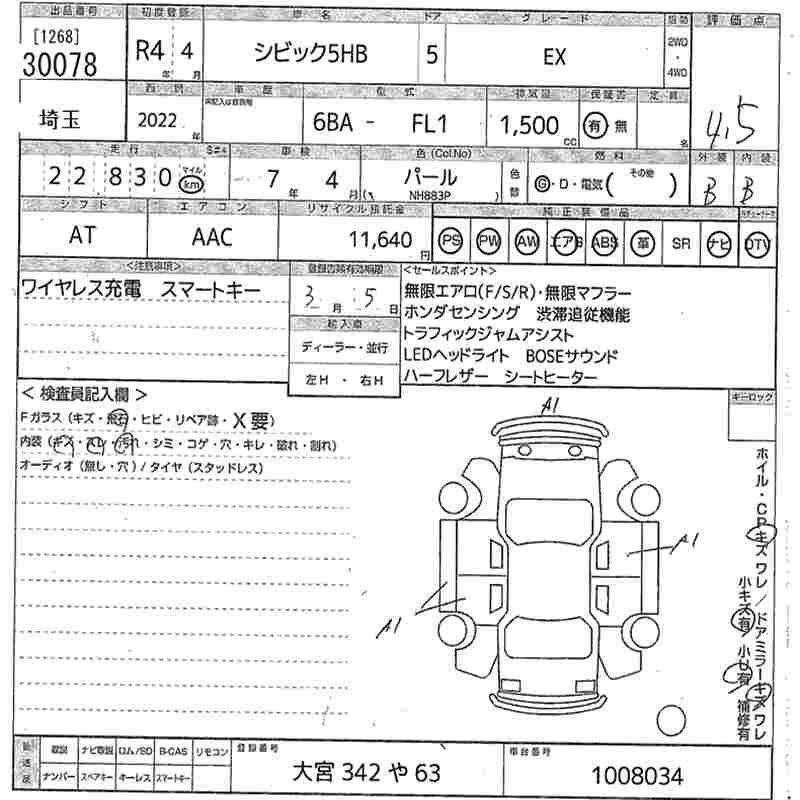 出品番号 初度登録 車名 ドア グレード 駆動 評価点
[1268]
30078 R4年 4月 シビック5HB 5 EX 2WD・4WD 4.5
埼玉 西暦 車歴 型式 排気量 保証書 定員
2022年 6BA - FL1 1,500CC 有 無 名
走行 車検 色(Col.No) 燃料 外装 内装
22830 マイル km 7年 4月 パール 色替 G・D・電気( その他 ) B B
( NH883P )
シフト エアコン リサイクル預託金 純正装備品
AT AAC 11,640円 PS PW AW エアB ABS 革 SR ナビ DTV
<注意事項> 登録書類有効期限 <セールスポイント>
ワイヤレス充電 スマートキー 3月 5日
無限エアロ(F/S/R)・無限マフラー
ホンダセンシング 渋滞追従機能
輸入車
トラフィックジャムアシスト
ディーラー・並行
LEDヘッドライト BOSEサウンド
左H・右H
ハーフレザー シートヒーター
<検査員記入欄> キーロック
Fガラス(キズ・飛石・ヒビ・リペア跡・X要)
内装(キズ・スレ・汚れ・シミ・コゲ・穴・キレ・破れ・割れ)
オーディオ(無し・穴)/タイヤ(スタッドレス)
A1
A1
A1
ホイル・CPキズワレ/ドアミラーキズワレ
小キズ有 小U有 補修有
後送品 取説 ナビ取説 ロム/SD B-CAS リモコン 登録番号 車台番号
ナンバー スペアキー キーレス スマートキー 大宮 342 や 63 1008034